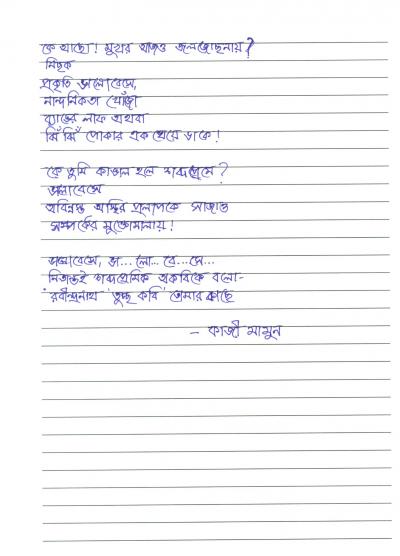 কে আছো! মুখর আজও জলজোছনায়?
নিছক
প্রকৃতি ভালোবেসে,
নান্দনিকতা খোঁজো
ব্যাঙের লাফ অথবা
ঝিঁ ঝিঁ পোকার একঘেয়ে ডাকে!
কে তুমি কাঙাল হলে শব্দপ্রেমে?
ভালোবেসে
অবিন্যস্ত অস্থির প্রলাপকে সাজাও
সম্পর্কের মুক্তোমালায়!
ভালোবেসে, ভা...লো...বে...সে...
নিতান্তই শব্দপ্রেমিক অকবিকে বলো-
রবীন্দ্রনাথ 'তুচ্ছ কবি' তোমার কাছে
- কাজী মামুন